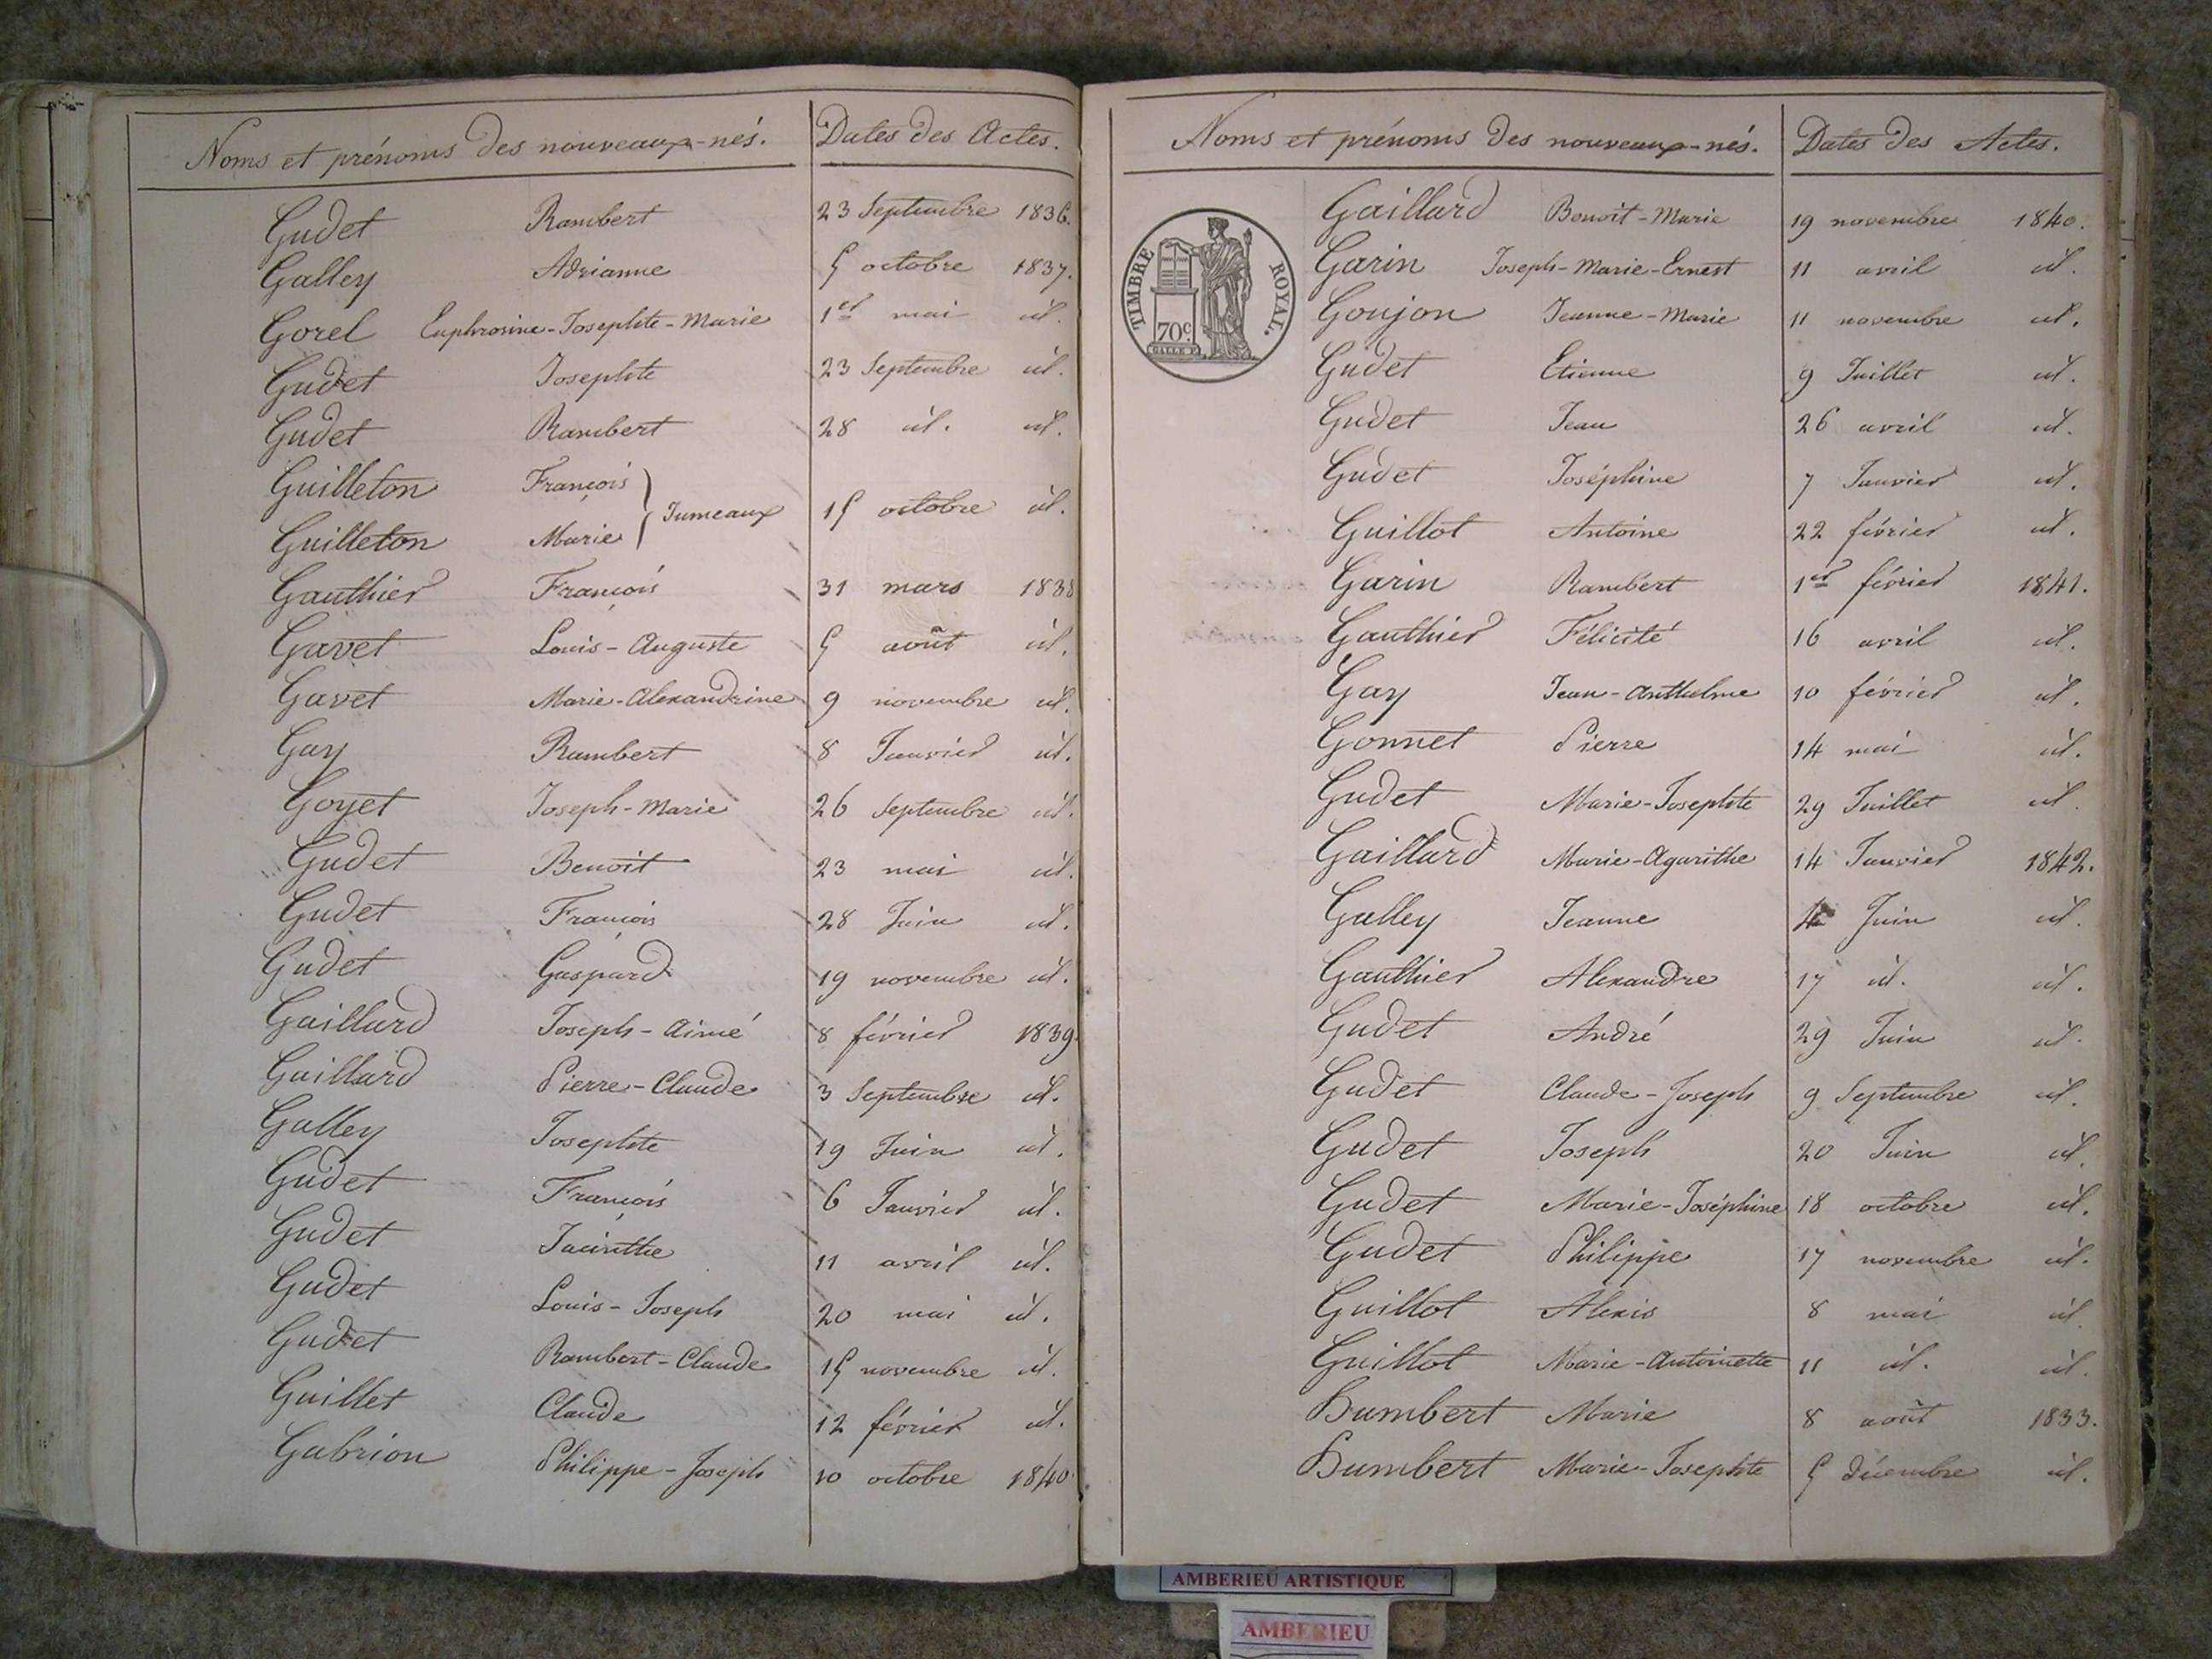 Noms et prénoms des nouveaux-nés. Dates des Actes.
Gudet Rambert 23 Septembre 1836.
Galley Adrianne 5 octobre 1837.
Gorel Euphrosine-Josephte-Marie 1er mai id.
Gudet Josephte 23 Septembre id.
Gudet Rambert 28 id. id.
Guilleton François
Jumeaux 15 octobre id.
Guilleton Marie
Gauthier François 31 mars 1838
Gavet Louis-Auguste 5 août id.
Gavet Marie-Alexandrine 9 novembre id.
Gay Rambert 8 Janvier id.
Goyet Joseph-Marie 26 Septembre id.
Gudet Benoit 23 mai id.
Gudet François 28 Juin id.
Gudet Gaspard 19 novembre id.
Gaillard Joseph-Aimé 8 février 1839
Gaillard Pierre-Claude 3 Septembre id.
Galley Josephte 19 Juin id.
Gudet François 6 Janvier id.
Gudet Jacinthe 11 avril id.
Gudet Louis-Joseph 20 mai id.
Gudet Rambert-Claude 15 novembre id.
Guillet Claude 12 février id.
Gabrion Philippe-Joseph 10 octobre 1840
Noms et prénoms des nouveaux-nés. Dates des Actes.
TIMBRE ROYAL.
70c.
Gaillard Benoit-Marie 19 novembre 1840.
Garin Joseph-Marie-Ernest 11 avril id.
Goujon Jeanne-Marie 11 novembre id.
Gudet Etienne 9 Juillet id.
Gudet Jean 26 avril id.
Gudet Joséphine 7 Janvier id.
Guillot Antoine 22 février id.
Garin Rambert 1er février 1841.
Gauthier Félicité 16 avril id.
Gay Jean-Anthelme 10 février id.
Gonnet Pierre 14 mai id.
Gudet Marie-Josephte 29 Juillet id
Gaillard Marie-Agarithe 14 Janvier 1842.
Galley Jeanne Juin id.
Gauthier Alexandre 17 id. id.
Gudet André 29 Juin id.
Gudet Claude-Joseph 9 Septembre id.
Gudet Joseph 20 Juin id.
Gudet Marie-Joséphine 18 octobre id.
Gudet Philippe 17 novembre id.
Guillot Alexis 8 mai id
Guillot Marie-Antoinette 11 id. id.
Humbert Marie 8 août 1833.
Humbert Marie-Josephte 5 décembre id.
AMBERIEU ARTISTIQUE
AMBERIEU